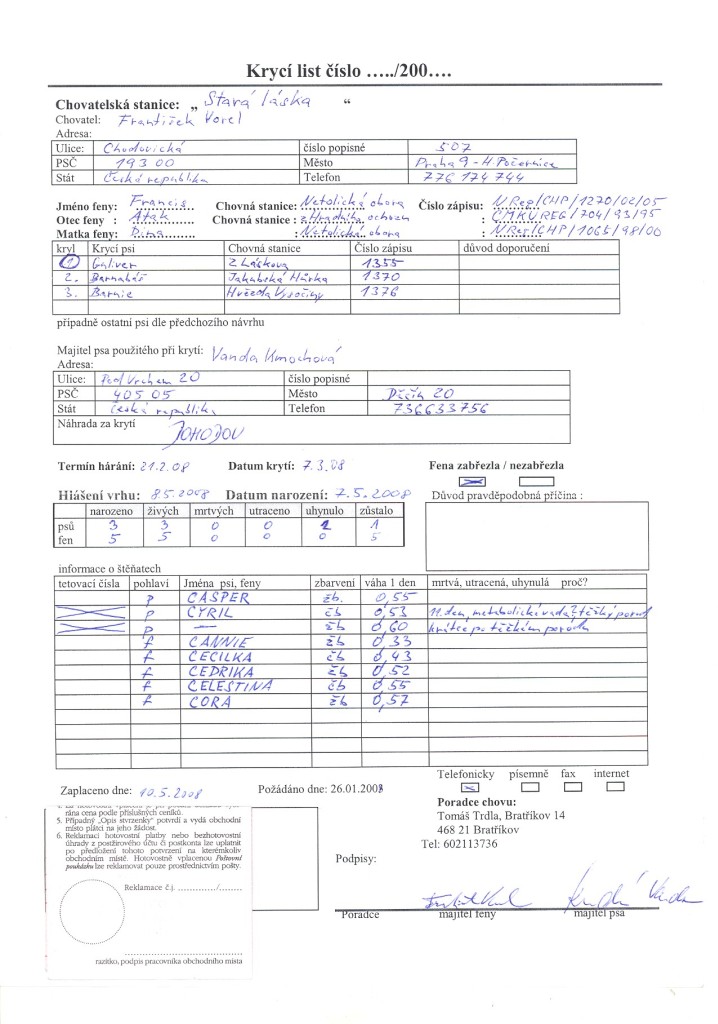 Krycí list číslo …../200….
Chovatelská stanice: „ Stará láska “
Chovatel: František Vorel
Adresa:
Ulice: Chudovická číslo popisné 507
PSČ 193 00 Město Praha 9 - H Počernice
Stát Česká republika Telefon 776 174 744
Jméno feny: Francis Chovná stanice: Netolická obora Číslo zápisu: N Reg/CHP/1270/02/05
Otec feny : Atak Chovná stanice : z Hradního ochozu : ČMKU REG/704/93/95
Matka feny: Rina : Netolická obora : N Reg/CHP/1065/98/00
kryl Krycí psi Chovná stanice Číslo zápisu důvod doporučení
1 Guliver Z Láskova 1355
2. Barnabáš Jakubská Hůrka 1370
3. Barnie Hvězda Vysočiny 1376
případně ostatní psi dle předchozího návrhu
Majitel psa použitého při krytí: Vanda Kmochová
Adresa:
Ulice: Pod Vrchem 20 číslo popisné
PSČ 405 05 Město Děčín 20
Stát Česká republika Telefon 736633756
Náhrada za krytí DOHODOU
Termín hárání: 21.2.08 Datum krytí: 7.3.08 Fena zabřezla / nezabřezla
Hlášení vrhu: 8.5.2008 Datum narození: 7.5.2008 Důvod pravděpodobná příčina :
narozeno živých mrtvých utraceno uhynulo zůstalo
psů 3 3 0 0 2 1
fen 5 5 0 0 0 5
informace o štěňatech
tetovací čísla pohlaví Jména psi, feny zbarvení váha 1 den mrtvá, utracená, uhynulá proč?
p CASPER žb. 0,55
p CYRIL čb 0,53 11. den, metabolická vada? těžký porod
p — žb 0,60 krátce po těžkém porodu
f CANNIE žb 0,33
f CECILKA čb 0,43
f CEDRIKA žb 0,52
f CELESTINA čb 0,55
f CORA žb 0,57
Zaplaceno dne: 10.5.2008 Požádáno dne: 26.01.2008 Telefonicky písemně fax internet
Poradce chovu:
Tomáš Trdla, Bratříkov 14
468 21 Bratříkov
Tel: 602113736
rána cena podle příslušných ceníků.
5. Případný „Opis stvrzenky“ potvrdí a vydá obchodní
místo plátci na jeho žádost.
6. Reklamaci hotovostní platby nebo bezhotovostní
úhrady z postžirového účtu či postkonta lze uplatnit
po předložení tohoto potvrzení na kterémkoliv
obchodním místě. Hotovostně vplacenou Poštovní
poukázku lze reklamovat pouze prostřednictvím pošty.
Reklamace č.j. ............/..........
Podpisy:
Poradce majitel feny majitel psa
razítko, podpis pracovníka obchodního místa